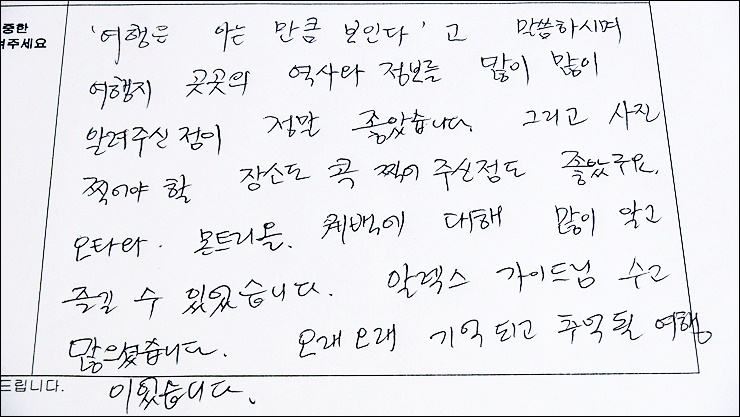 중한
겨주세요
'여행은 아는 만큼 보인다'고 말씀하시며
여행지 곳곳의 역사와 정보를 많이 많이
알려주신 점이 정말 좋았습니다. 그리고 사진
찍어야 할 장소도 콕 찍어 주신점도 좋았구요.
오타와. 몬트리올. 퀘백에 대해 많이 알고
즐길 수 있었습니다. 알렉스 가이드님 수고
많으셨습니다. 오래오래 기억되고 추억될 여행
드립니다.
이었습니다.